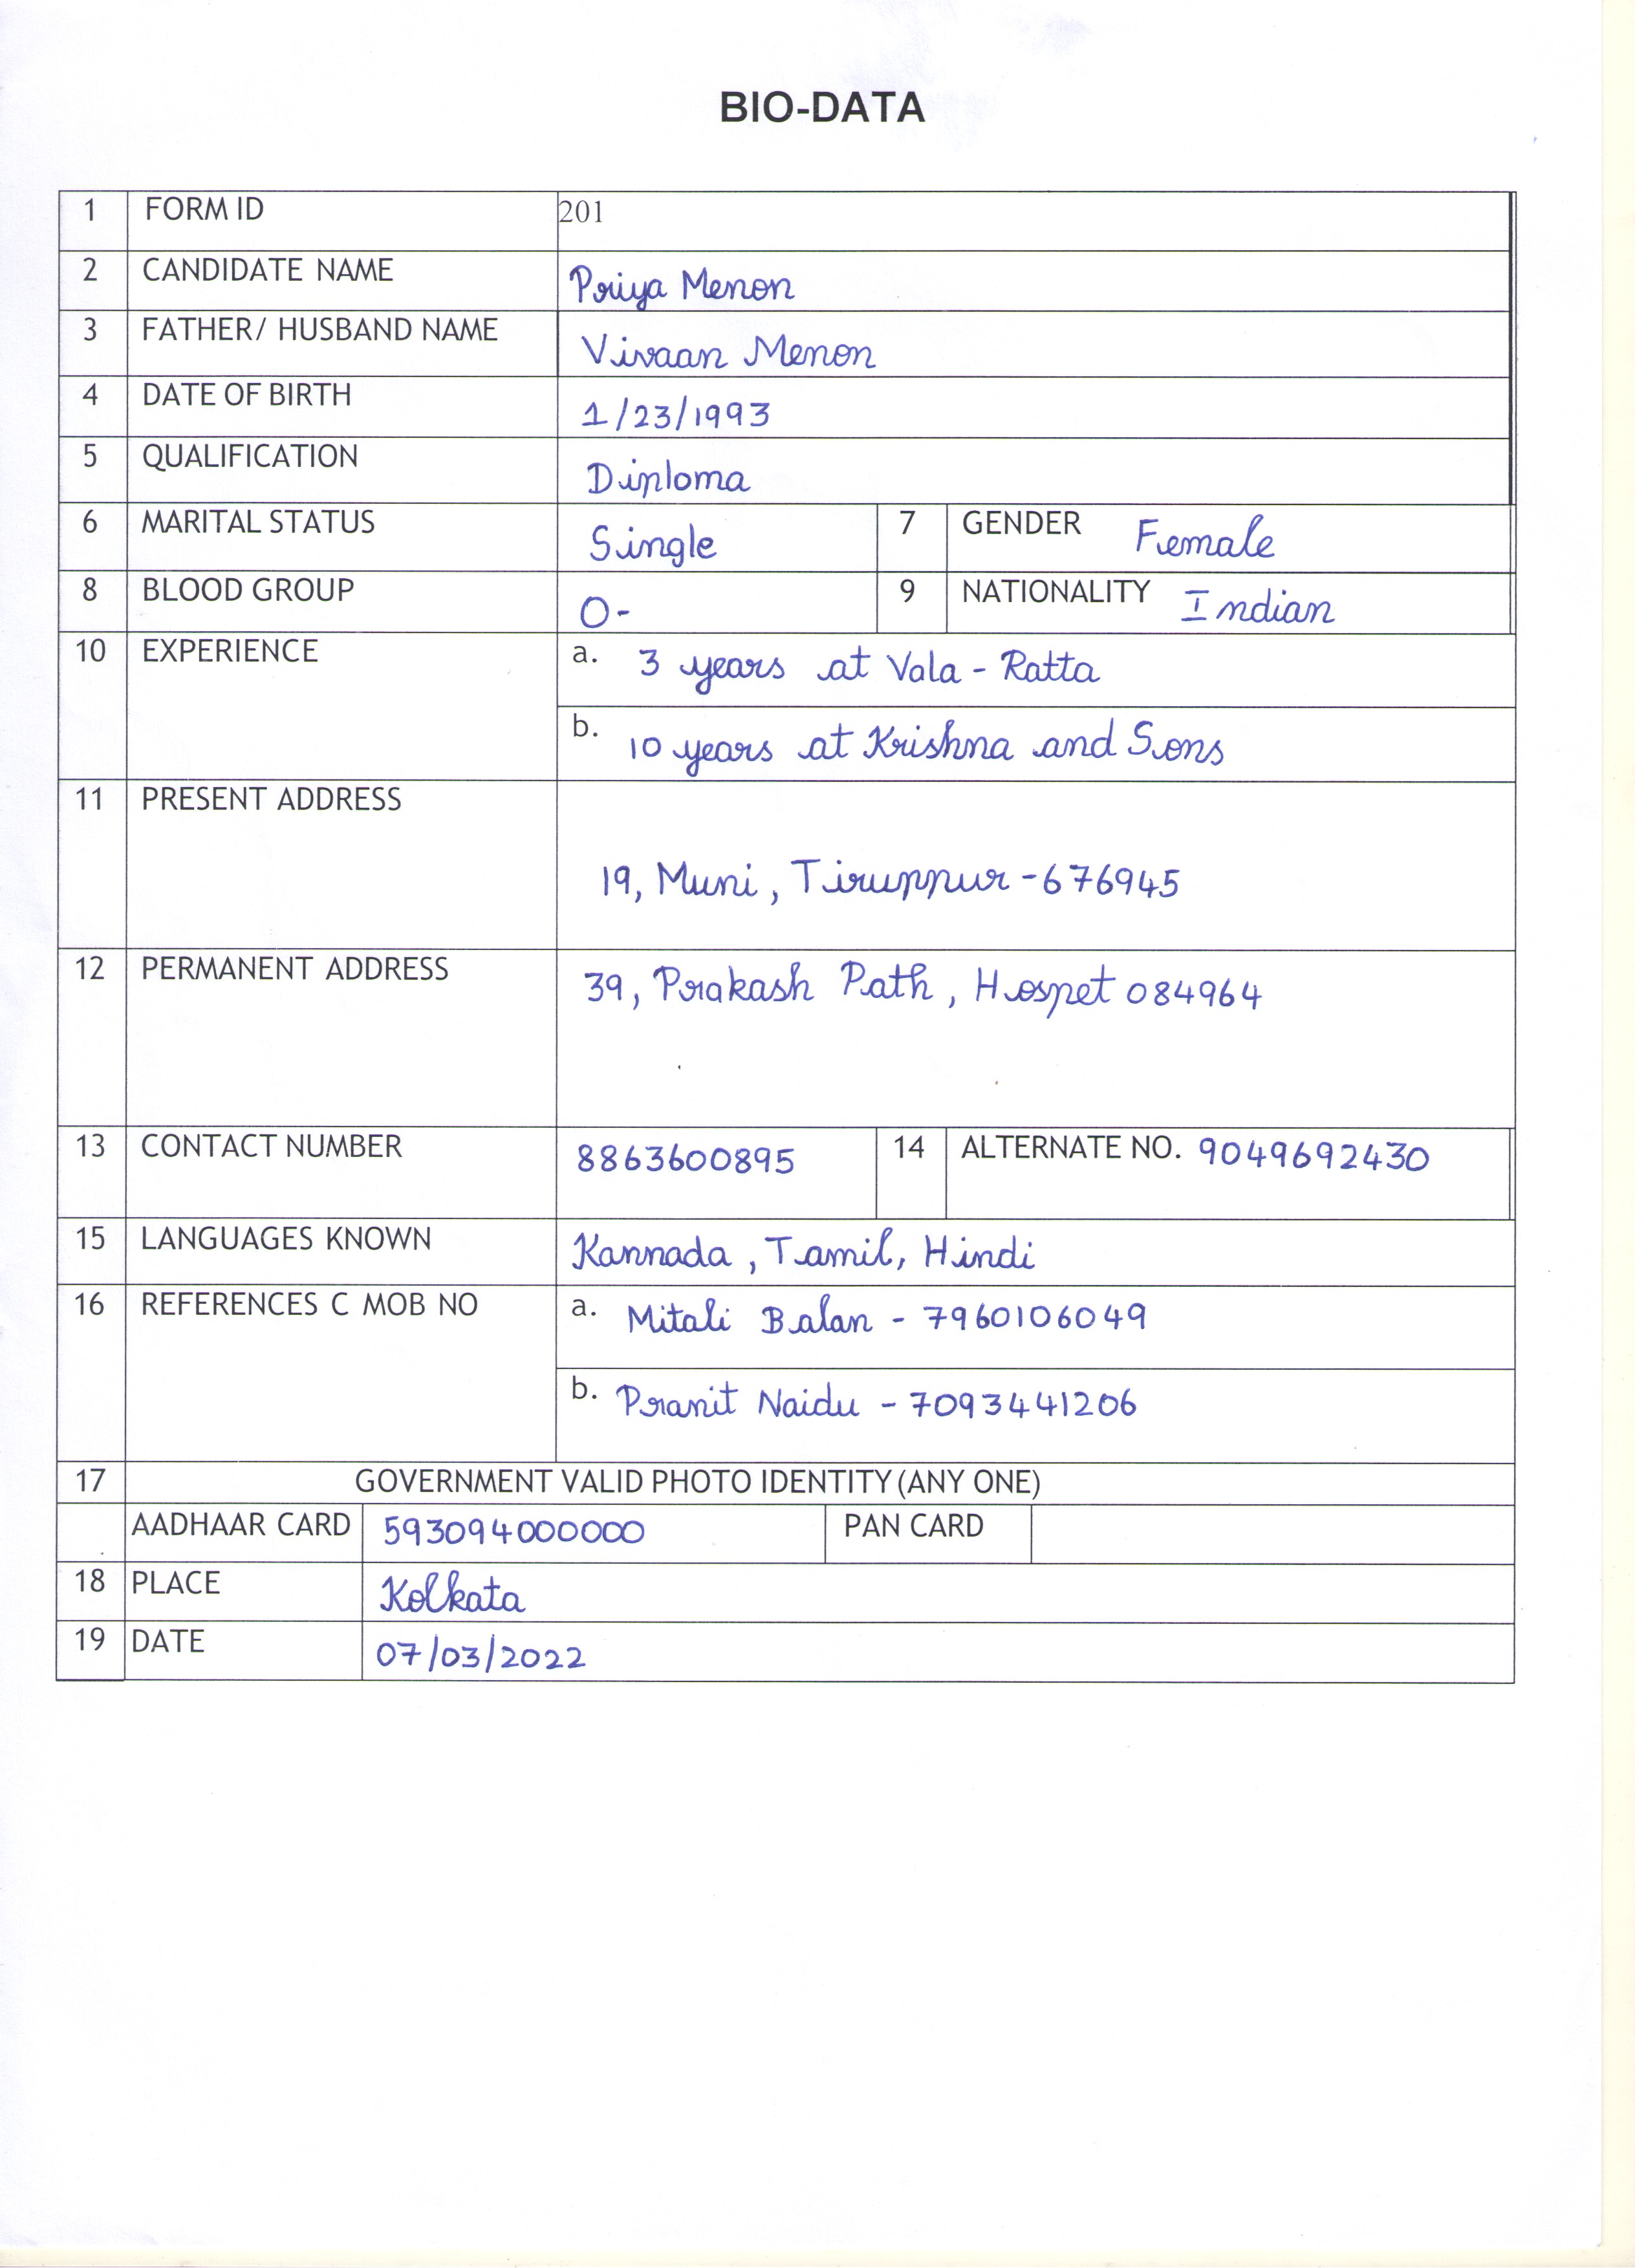 BIO-DATA
1 FORM ID 201
2 CANDIDATE NAME Priya Menon
3 FATHER/ HUSBAND NAME Vivaan Menon
4 DATE OF BIRTH 1/23/1993
5 QUALIFICATION Diploma
6 MARITAL STATUS Single 7 GENDER Female
8 BLOOD GROUP O- 9 NATIONALITY Indian
10 EXPERIENCE a. 3 years at Vala - Ratta
b. 10 years at Krishna and Sons
11 PRESENT ADDRESS
19, Muni, Tiruppur - 676945
12 PERMANENT ADDRESS 39, Prakash Path, Hospet 084964
13 CONTACT NUMBER 8863600895 14 ALTERNATE NO. 9049692430
15 LANGUAGES KNOWN Kannada, Tamil, Hindi
16 REFERENCES C MOB NO a. Mitali Balan - 7960106049
b. Pranit Naidu - 7093441206
17 GOVERNMENT VALID PHOTO IDENTITY (ANY ONE)
AADHAAR CARD 593094000000 PAN CARD
18 PLACE Kolkata
19 DATE 07/03/2022